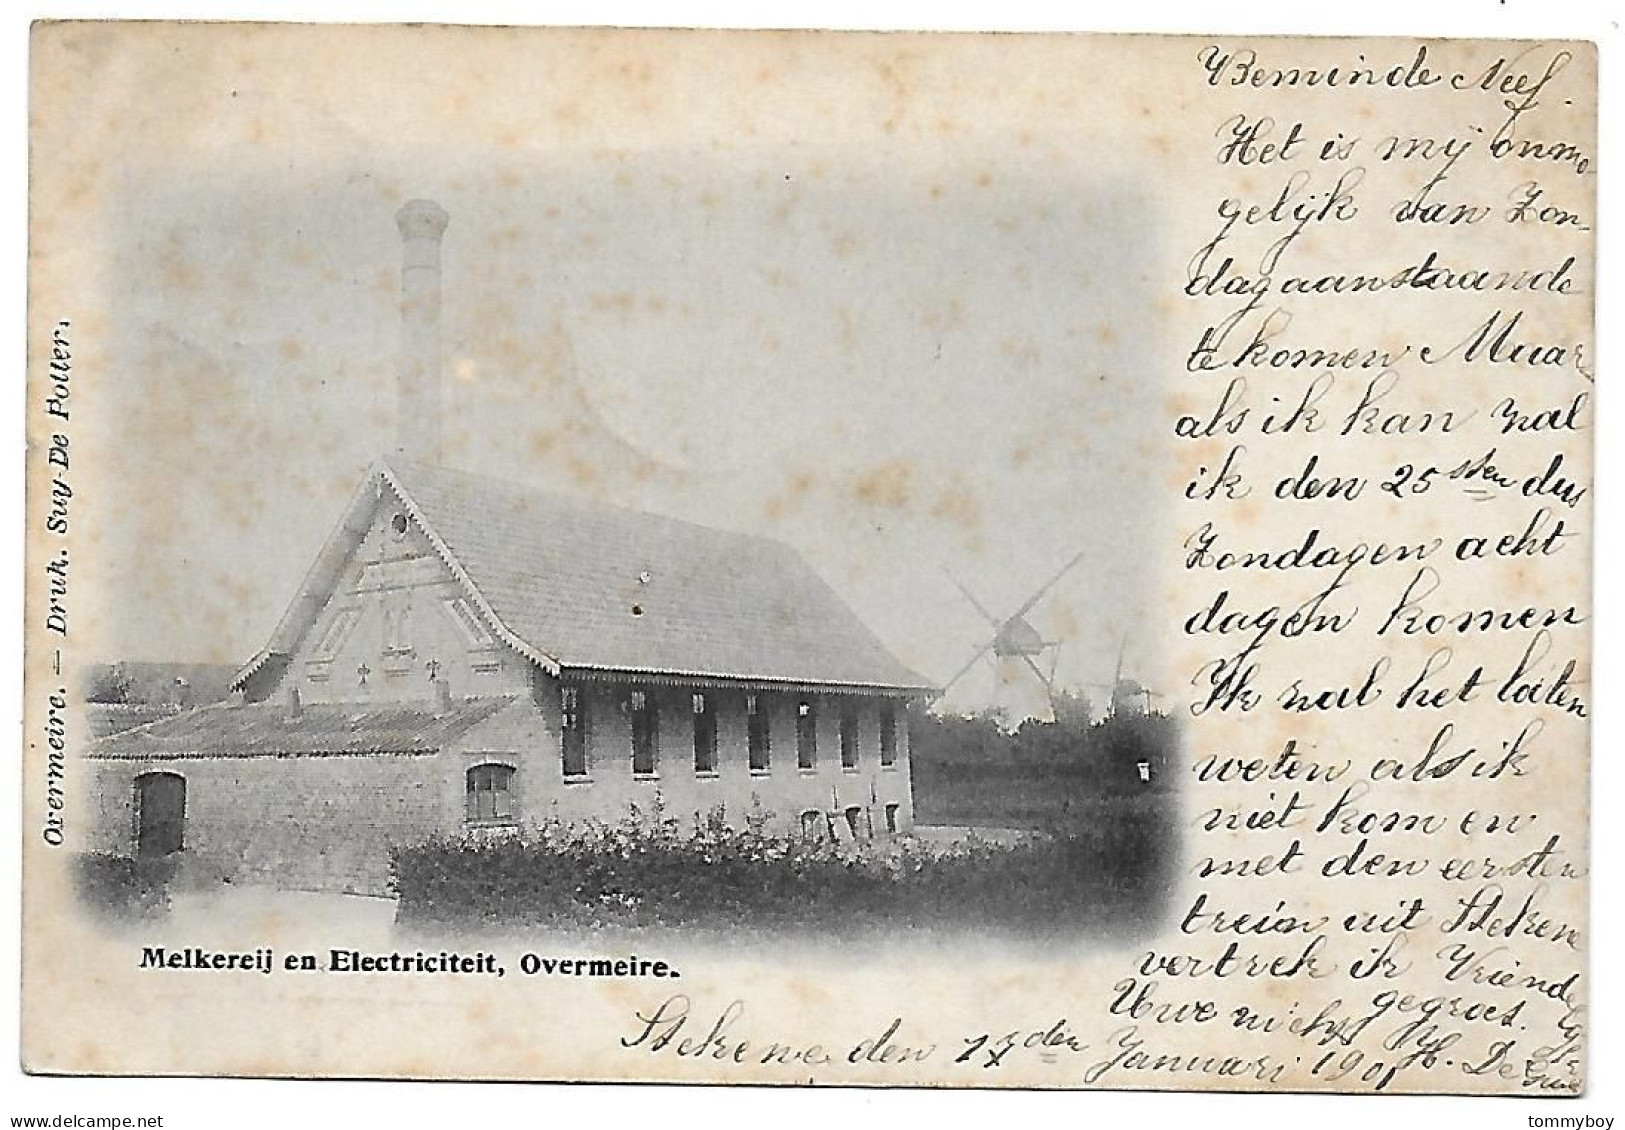 Beminde Neef.
Het is mij onmo-
gelijk van Zon-
dag aanstaande
te komen Maar
als ik kan zal
ik den 25sten dus
Zondagen acht
dagen komen
Ik zal het laten
weten als ik
niet kom en
met den eersten
trein uit Stekene
vertrek ik Vriende
gegroet.
Uwe nicht
H. De
Stekene den 17den Januari 1901
Melkereij en Electriciteit, Overmeire.
Overmeire. — Druk. Suy-De Potter.
tommyboy